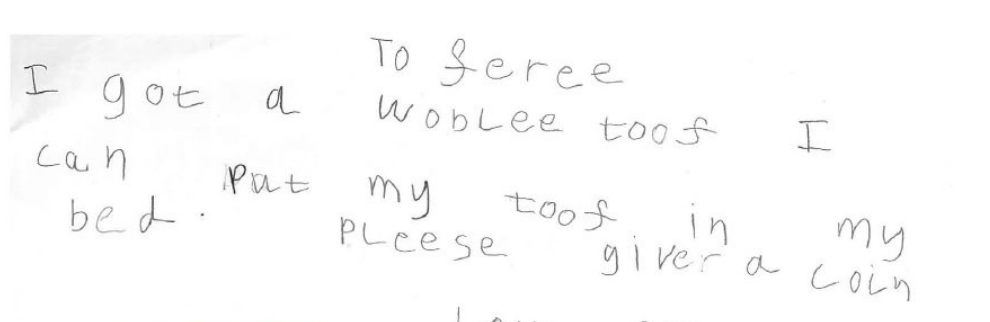 To feree
I got a wobLee toof I
can put my toof in my
bed. PLeese giver a coin